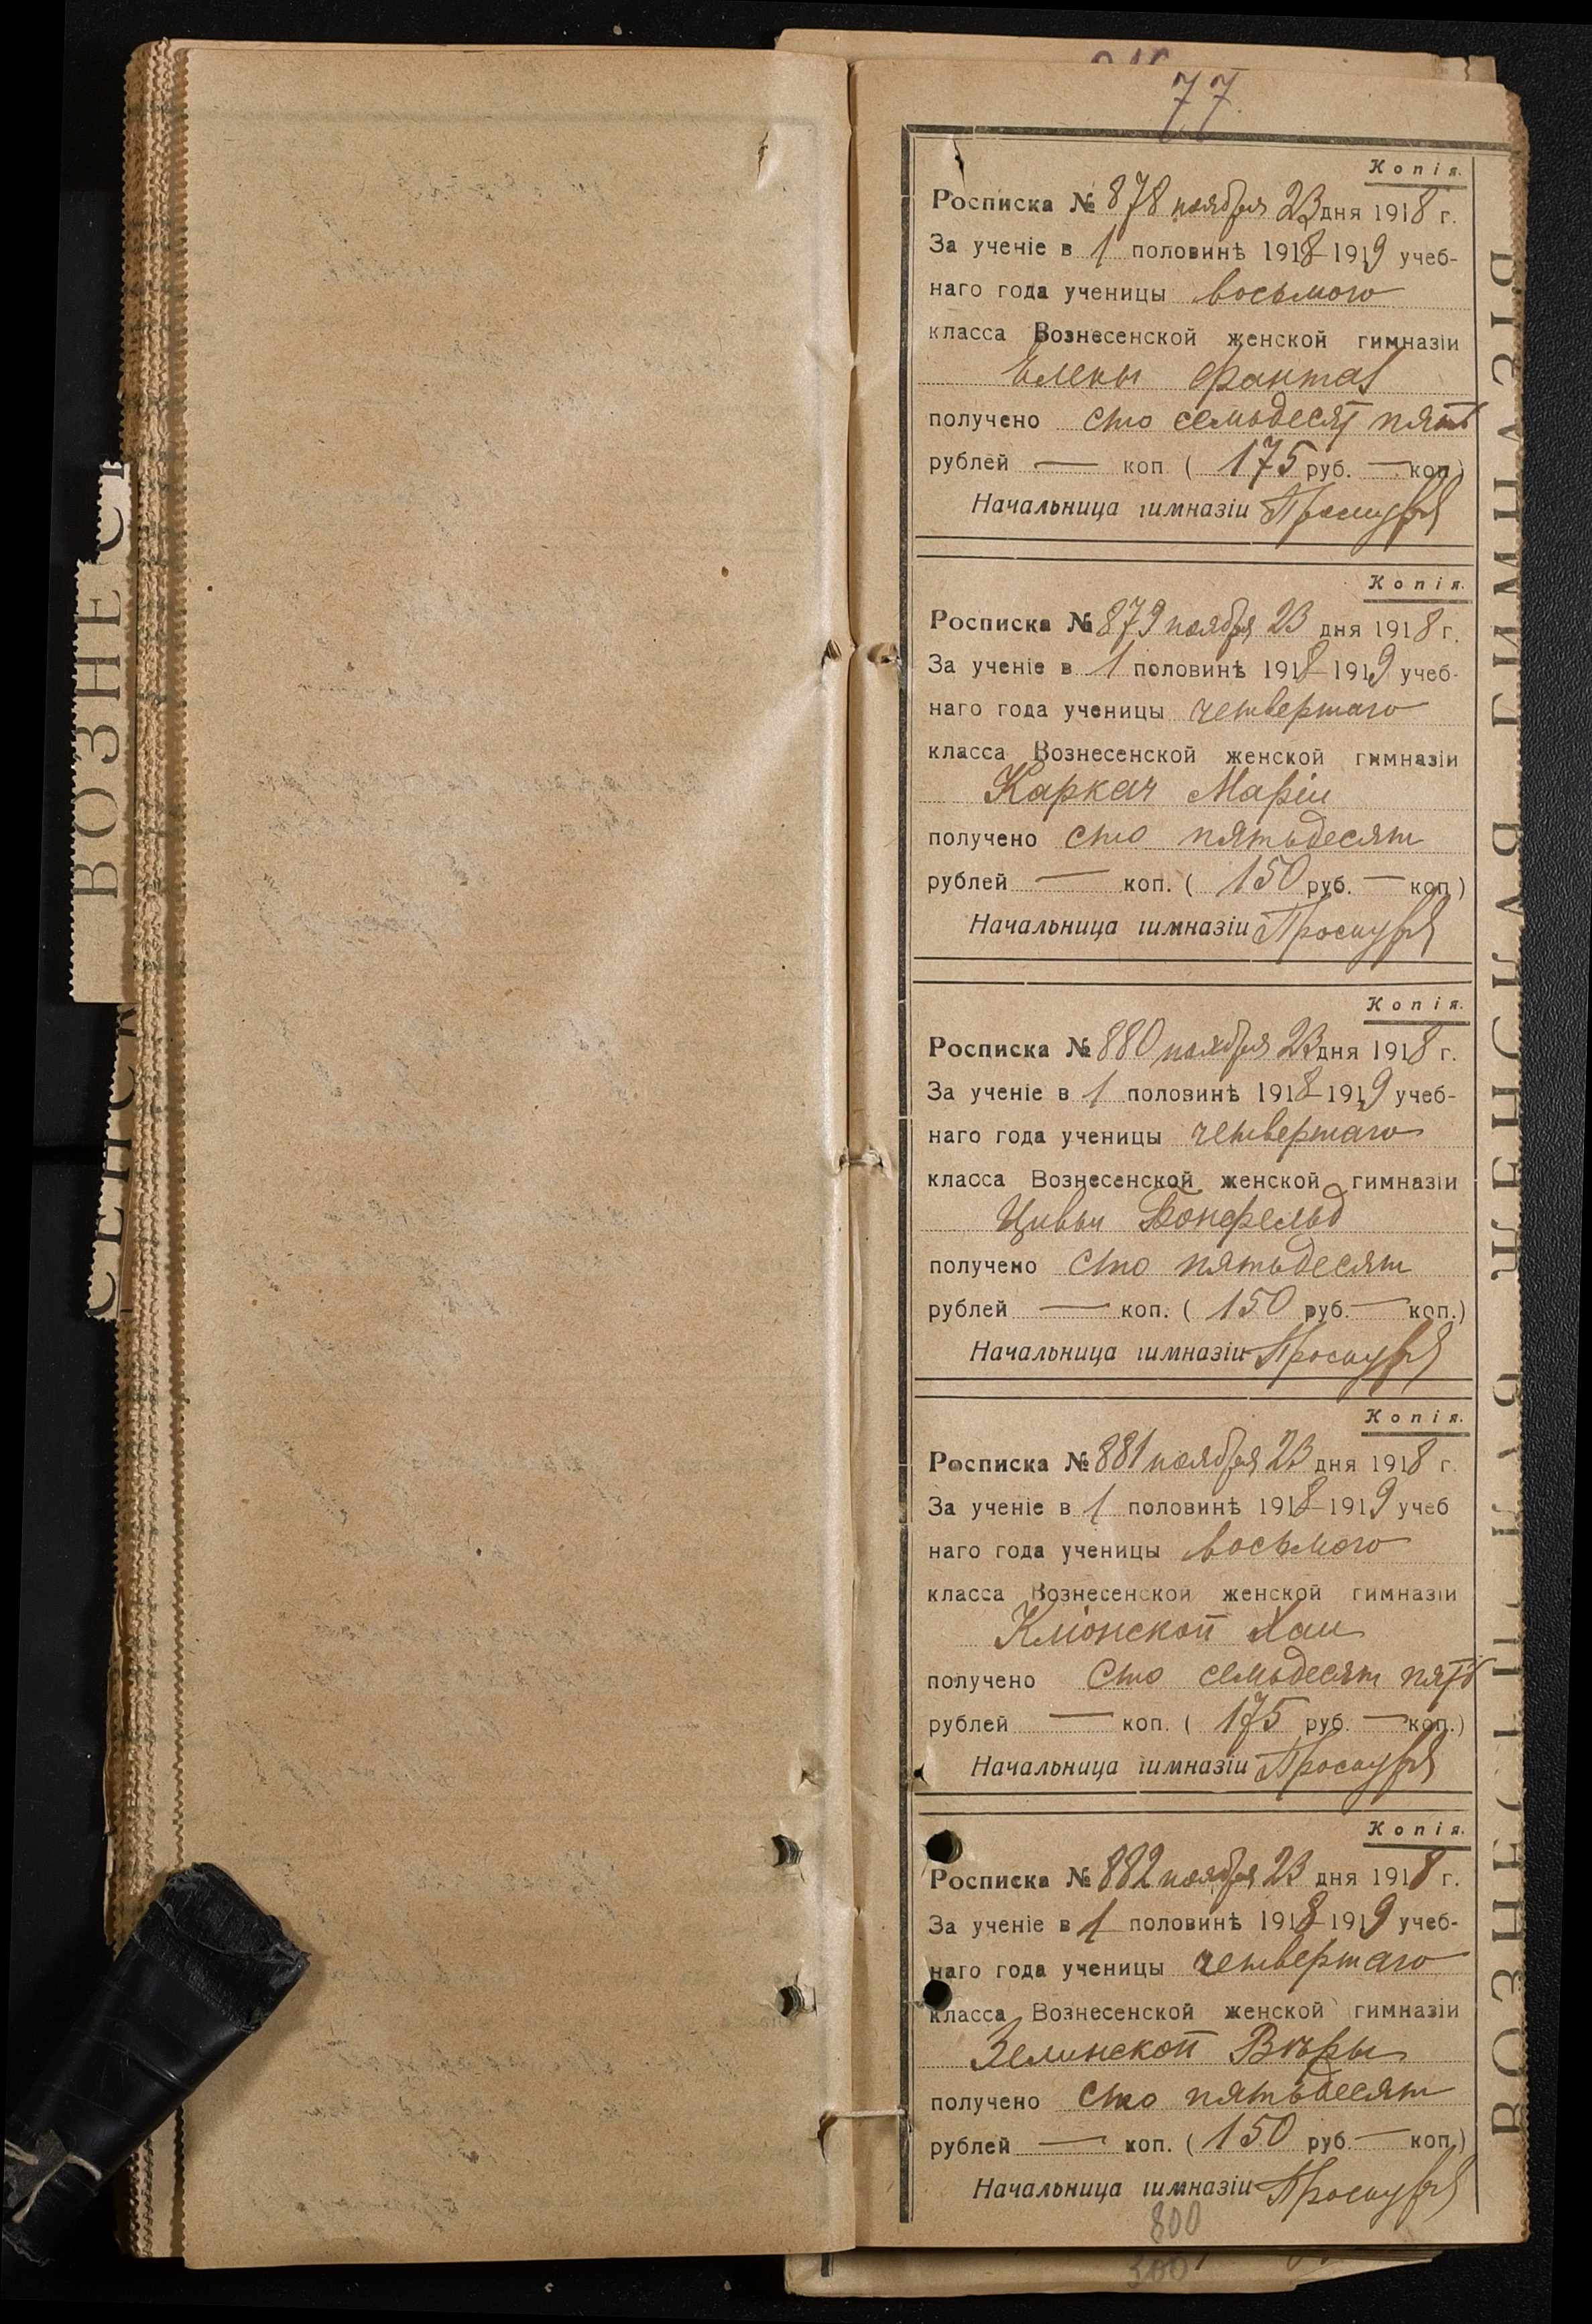 77
Копія.
Росписка № 878 ноября 23 дня 1918 г.
За ученіе в 1 половинѣ 1918-1919 учеб-
наго года ученицы восьмого
класса Вознесенской женской гимназіи
Елены Фонтав
получено сто семьдесят пять
рублей — коп. ( 175 руб. — коп.)
Начальница гимназіи
Копія.
Росписка № 879 ноября 23 дня 1918 г.
За ученіе в 1 половинѣ 1918-1919 учеб-
наго года ученицы четвертаго
класса Вознесенской женской гимназіи
Каркач Маріи
получено сто пятьдесят
рублей — коп. ( 150 руб. — коп.)
Начальница гимназіи
Копія.
Росписка № 880 ноября 23 дня 1918 г.
За ученіе в 1 половинѣ 1918-1919 учеб-
наго года ученицы четвертаго
класса Вознесенской женской гимназіи
Цивьи Бонфельд
получено сто пятьдесят
рублей — коп. ( 150 руб. — коп.)
Начальница гимназіи
Копія.
Росписка № 881 ноября 23 дня 1918 г.
За ученіе в 1 половинѣ 1918-1919 учеб
наго года ученицы восьмого
класса Вознесенской женской гимназіи
Кліонской Хаи
получено сто семьдесят пять
рублей — коп. ( 175 руб. — коп.)
Начальница гимназіи
Копія.
Росписка № 882 ноября 23 дня 1918 г.
За ученіе в 1 половинѣ 1918-1919 учеб-
наго года ученицы четвертаго
класса Вознесенской женской гимназіи
Зелинской Вѣры
получено сто пятьдесят
рублей — коп. ( 150 руб. — коп.)
Начальница гимназіи
800
300
ВОЗНЕ